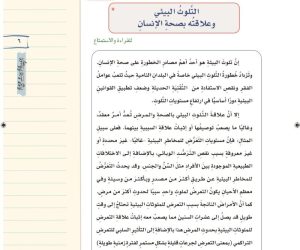 التلوث البيئي
وعلاقته بصحة الإنسان
للقراءة والاستمتاع
٦
إن تلوث البيئة هو أحد أهم مصادر الخطورة على صحة الإنسان.
وتزداد خطورة التلوث البيئي خاصة في البلدان النامية حيث تلعب عوامل
الفقر ونقص الاستفادة من التقنية الحديثة وضعف تطبيق القوانين
البيئية دورًا أساسيًا في ارتفاع مستويات التلوث.
إلا أن علاقة التلوث البيئي بالصحة والمرض تُعد أمرًا معقدًا،
وغالبًا ما يصعب توصيفها أو إثبات علاقة السببية بينهما. فعلى سبيل
المثال، غالبًا ما يكون التعرض للمخاطر البيئية غير محددة أو
غير معروفة بسبب نقص الرصد الوبائي، بالإضافة إلى الاختلافات
الطبيعية الموجودة بين الأفراد مثل السن والجنس. وقد يحدث التعرض
للمخاطر البيئية عن طريق أكثر من مصدر وبأكثر من وسيلة وفي
معظم الأحيان يكون التعرض لملوث واحد سببًا لحدوث أكثر من مرض.
كما أن الأمراض الناتجة بسبب التعرض للملوثات البيئية تحتاج إلى وقت
طويل قد يصل إلى عشرات السنين مما يصعب معه إثبات علاقة التعرض
للملوثات البيئية بحدوث المرض هذا بالإضافة إلى التأثير السلبي للتعرض
التراكمي (بمعنى التعرض لجرعات قليلة بشكل مستمر لفترة زمنية طويلة)